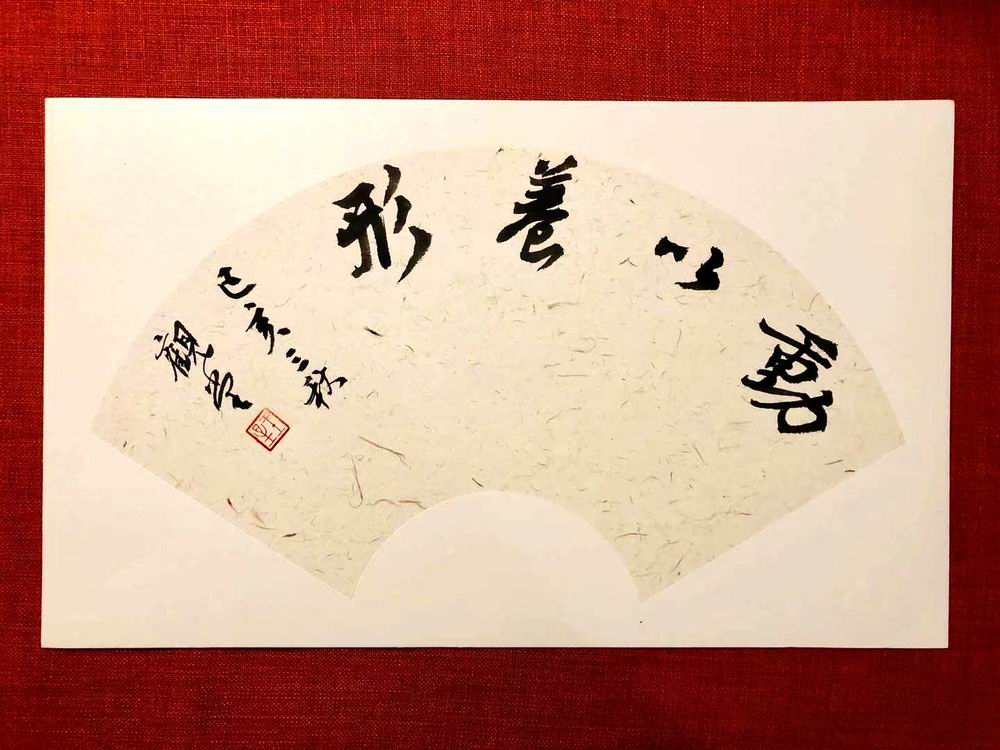 動以養形
己亥三秋
觀